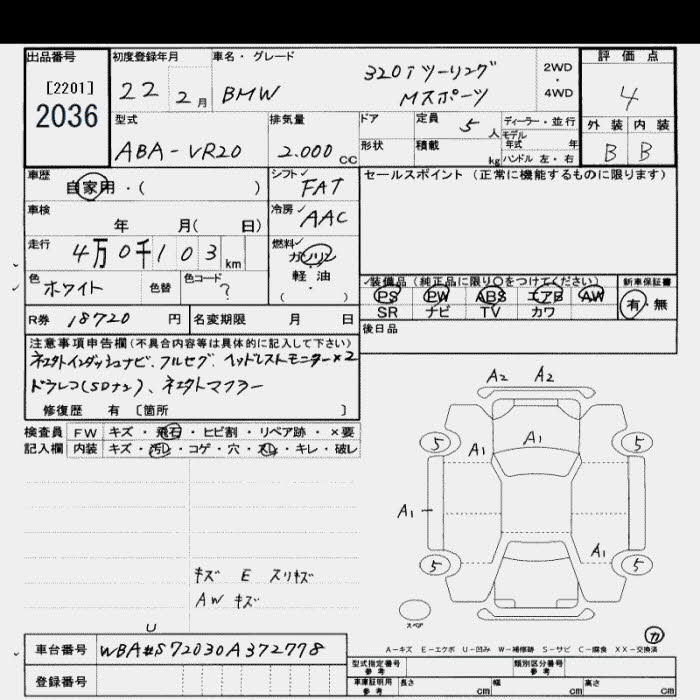 出品番号
[2201]
2036
初度登録年月
22 2月
車名・グレード
BMW
320i ツーリング
Mスポーツ
2WD
・
4WD
評価点
4
外装 内装
B B
型式
ABA-VR20
排気量
2.000 cc
ドア
定員 5 人
形状
積載 kg
ディーラー・並行
モデル
年式 年
ハンドル 左・右
車歴
自家用・( )
シフト
FAT
セールスポイント(正常に機能するものに限ります)
車検
年 月( 日)
冷房
AAC
走行
4万0千103 km
燃料
ガソリン
軽・油
( )
色
ホワイト
色替
色コード
?
装備品(純正品に限り○をつけてください)
PS PW ABS エアB AW
SR ナビ TV カワ
新車保証書
有・無
R券 18720 円
名変期限 月 日
後日品
注意事項申告欄(不具合内容等は具体的に記入して下さい)
ネエクトインダッシュナビ、フルセグ、ヘッドレストモニター×2
ドラレコ(SDナシ)、ネエクトマフラー
修復歴 有 〔箇所 〕
検査員 FW キズ・飛石・ヒビ割・リペア跡・×要
記入欄 内装 キズ・汚レ・コゲ・穴・スレ・キレ・破レ
A2 A2
5 5
A1 A1
A1
A1
5 5
スペア
キズ E スリキズ
AW キズ
U
カ
A-キズ E-エクボ U-凹み W-補修跡 S-サビ C-腐食 XX-交換済
車台番号 WBA#S72030A372778
登録番号
型式指定番号
参考
類別区分番号
参考
車庫証明用
参考
長さ cm 幅 cm 高さ cm